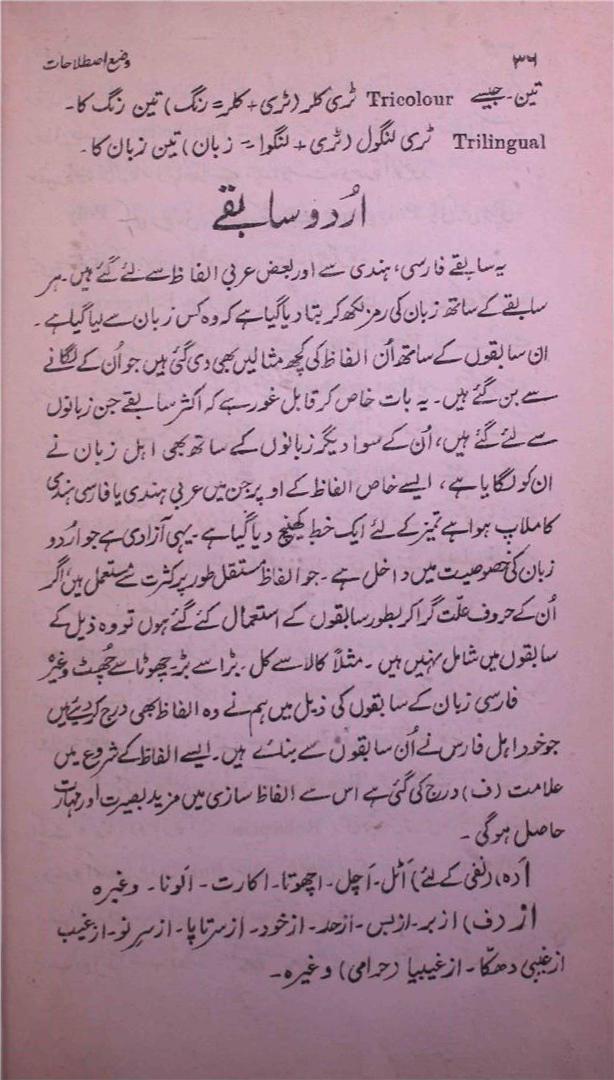 ۳۶ وضع اصطلاحات
تین۔ جیسے Tricolour ٹری کلر (ٹری + کلر = رنگ) تین رنگ کا۔
Trilingual ٹری لنگول (ٹری + لنگوا = زبان) تین زبان کا۔
اُردو سابقے
یہ سابقے فارسی، ہندی سے اور بعض عربی الفاظ سے لئے گئے ہیں۔ ہر
سابقے کے ساتھ زبان کی رمز لکھ کر بتا دیا گیا ہے کہ وہ کس زبان سے لیا گیا ہے۔
ان سابقوں کے ساتھ اُن الفاظ کی کچھ مثالیں بھی دی گئی ہیں جو اُن کے لگانے
سے بن گئے ہیں۔ یہ بات خاص کر قابل غور ہے کہ اکثر سابقے جن زبانوں
سے لئے گئے ہیں، اُن کے سوا دیگر زبانوں کے ساتھ بھی اہل زبان نے
ان کو لگایا ہے، ایسے خاص الفاظ کے اوپر جن میں عربی ہندی یا فارسی ہندی
کا ملاپ ہوا ہے تمیز کے لئے ایک خط کھینچ دیا گیا ہے۔ یہی آزادی ہے جو اُردو
زبان کی خصوصیت میں داخل ہے۔ جو الفاظ مستقل طور پر کثرت سے مستعمل ہیں اگر
اُن کے حروف علّت گرا کر بطور سابقوں کے استعمال کئے گئے ہوں تو وہ ذیل کے
سابقوں میں شامل نہیں ہیں۔ مثلاً کالا سے کل۔ بڑا سے بڑ۔ چھوٹا سے چھٹ وغیرہ
فارسی زبان کے سابقوں کی ذیل میں ہم نے وہ الفاظ بھی درج کر دیئے ہیں
جو خود اہل فارس نے اُن سابقوں سے بنائے ہیں۔ ایسے الفاظ کے شروع میں
علامت (ف) درج کی گئی ہے اس سے الفاظ سازی میں مزید بصیرت اور مہارت
حاصل ہوگی۔
اَ (ہ، نفی کے لئے) اَٹل۔ اَچل۔ اچھوتا۔ اکارت۔ اَلونا۔ وغیرہ
از (ف) از بر۔ از بس۔ از حد۔ از خود۔ از سرتا پا۔ از سرِ نو۔ از غیب
از غیبی دھکّا۔ از غیبیا (حرامی) وغیرہ۔